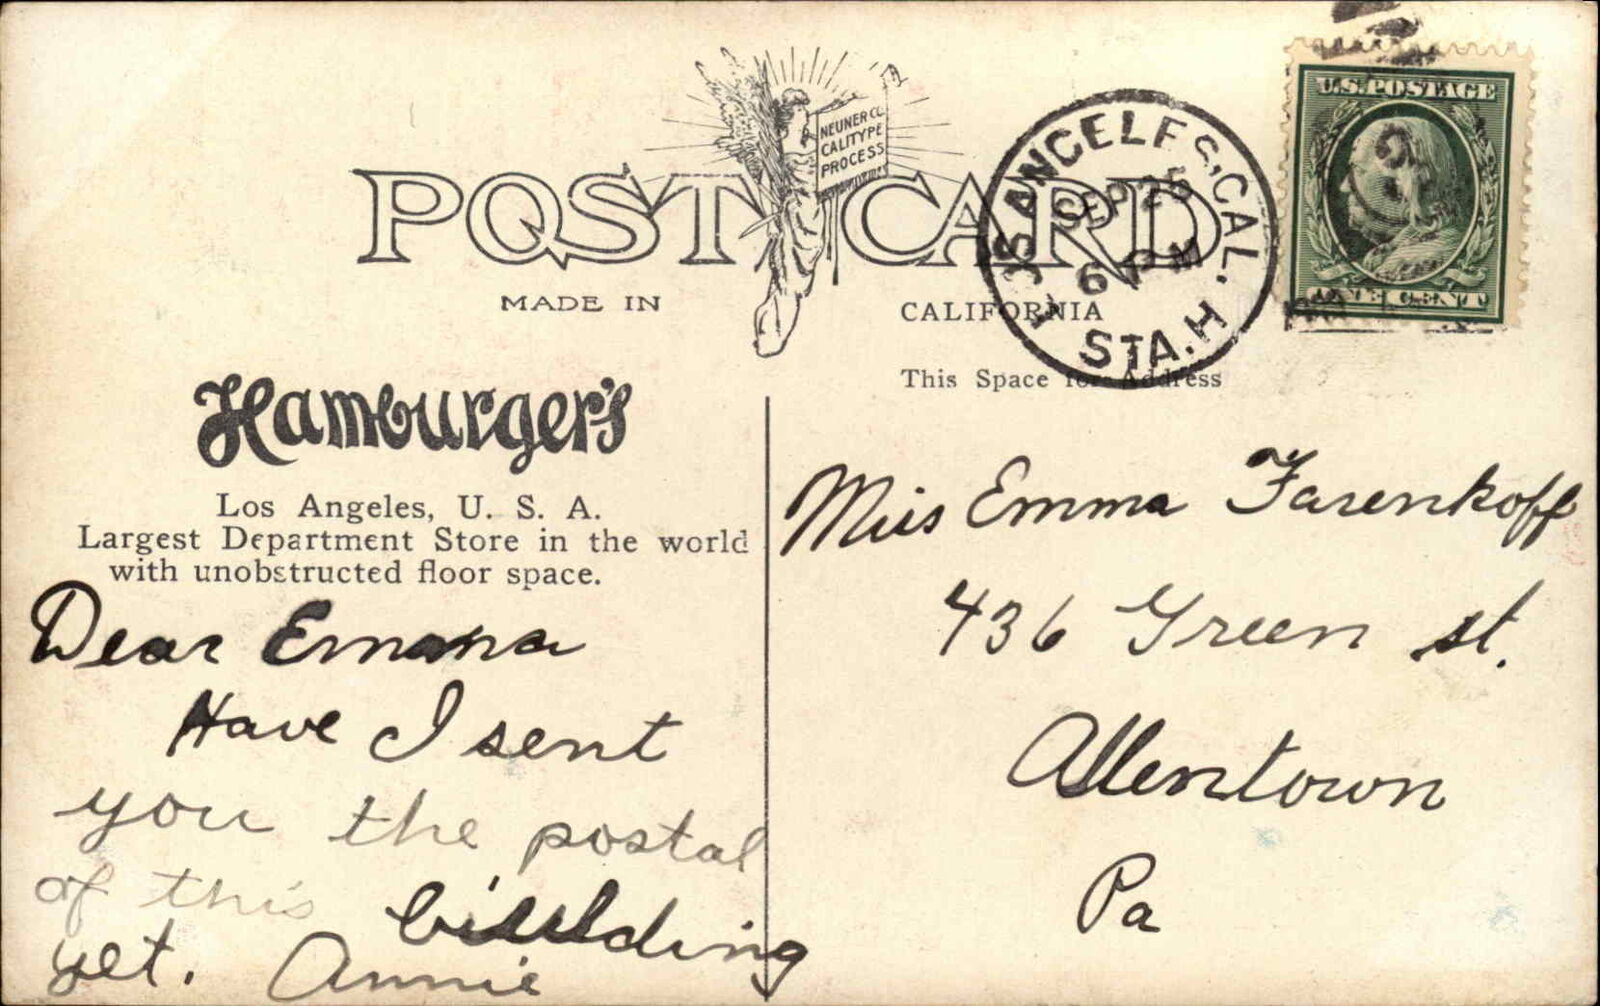 NEUNER CO.
CALITYPE
PROCESS
POST CARD
MADE IN CALIFORNIA
LOS ANGELES, CAL.
SEP 25
6 PM
STA. H
U.S. POSTAGE
ONE CENT
This Space for Address
Hamburger's
Los Angeles, U. S. A.
Largest Department Store in the world
with unobstructed floor space.
Dear Emma
Have I sent
you the postal
of this building
yet. Annie
Miss Emma Farenkoff
436 Green st.
Allentown
Pa